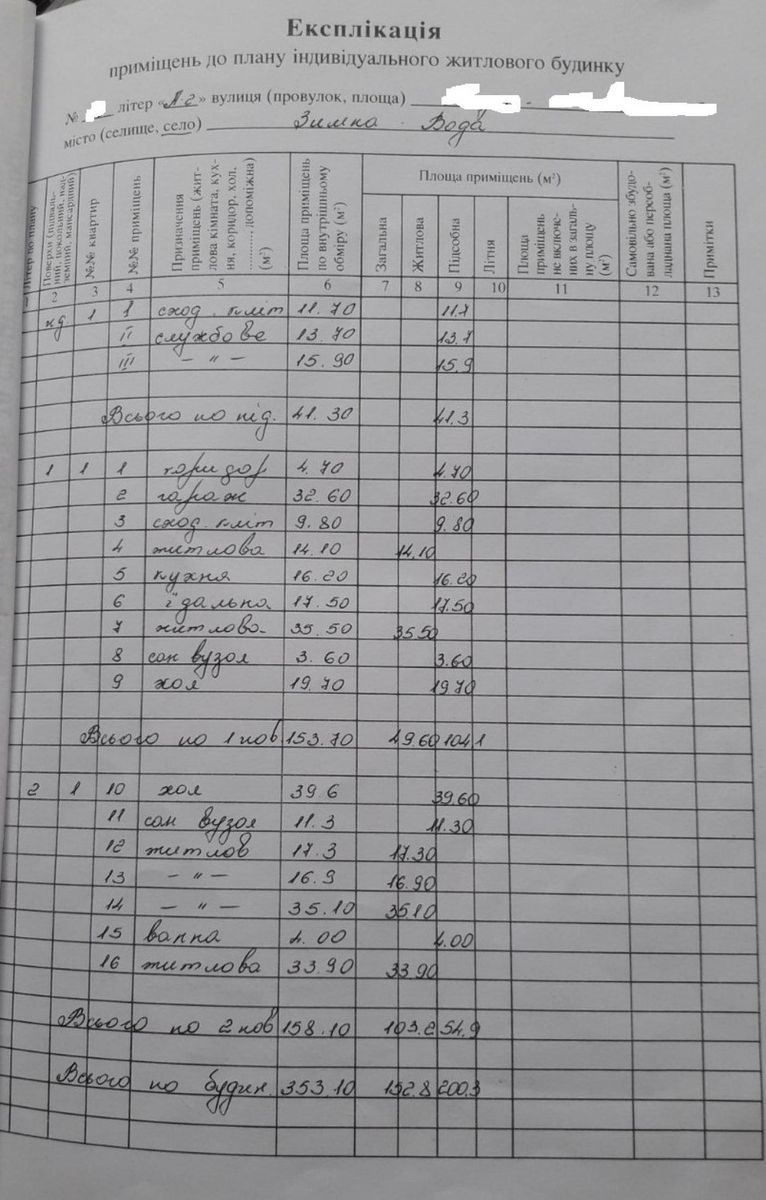 Експлікація
приміщень до плану індивідуального житлового будинку
№ літер «А2» вулиця (провулок, площа)
місто (селище, село) Зимна Вода
Літер по плану
Поверхи (підвальний, цокольний, надземний, мансардний)
№№ квартир
№№ приміщень
Призначення приміщень (житлова кімната, кухня, коридор, хол, ............, допоміжна) (м²)
Площа приміщень по внутрішньому обміру (м²)
Площа приміщень (м²)
Загальна
Житлова
Підсобна
Літня
Площа приміщень не включених в загальну площу (м²)
Самовільно збудована або переобладнана площа (м²)
Примітки
2 3 4 5 6 7 8 9 10 11 12 13
під 1 I сход. кліт 11.70 11.7
II службове 13.70 13.7
III – " – 15.90 15.9
Всього по під. 41.30 41.3
1 1 1 коридор 4.70 4.70
2 гараж 32.60 32.60
3 сход. кліт 9.80 9.80
4 житлова 14.10 14.10
5 кухня 16.20 16.20
6 їдальна 17.50 17.50
7 житлова 35.50 35.50
8 сан вузол 3.60 3.60
9 хол 19.70 19.70
Всього по 1 пов 153.70 49.60 104.1
2 1 10 хол 39.6 39.60
11 сан вузол 11.3 11.30
12 житлов 17.3 17.30
13 – " – 16.9 16.90
14 – " – 35.10 35.10
15 ванна 4.00 4.00
16 житлова 33.90 33.90
Всього по 2 пов 158.10 103.2 54.9
Всього по будин. 353.10 152.8 200.3